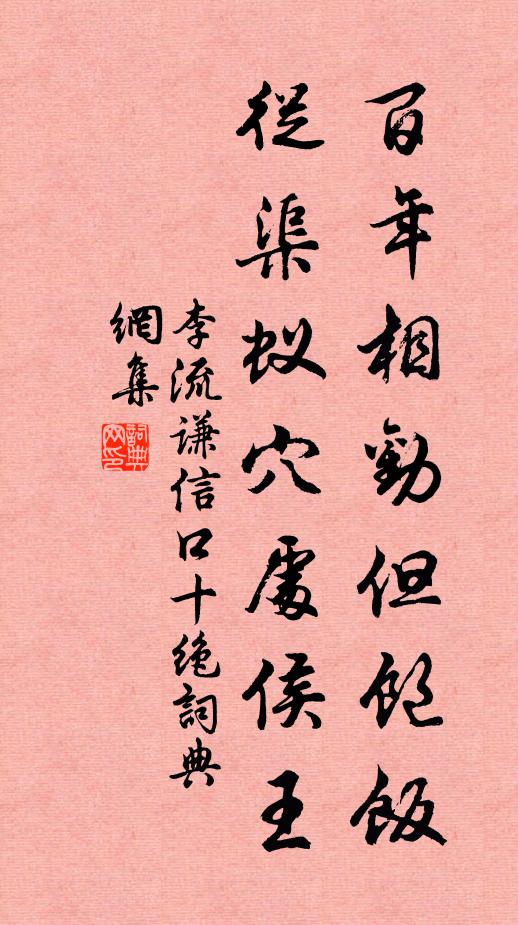 百年相勸但飽飯
從渠蚁穴處侯王
李流謙信口十绝詞典
網集
詞典
网印